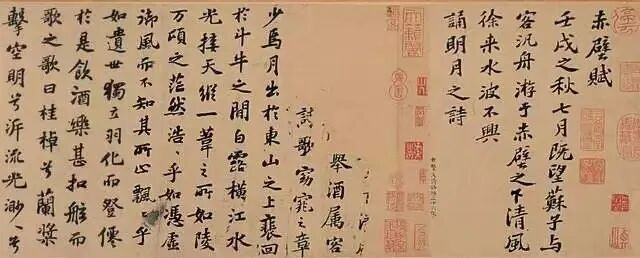 赤壁賦
壬戌之秋七月既望蘇子與
客汎舟游于赤壁之下清風
徐来水波不興
誦明月之詩
舉酒属客
歌窈窕之章
少焉月出於東山之上裵回
於斗牛之間白露橫江水
光接天縱一葦之所如陵
万頃之茫然浩〻乎如憑虛
御風而不知其所止飄〻乎
如遺世獨立羽化而登僊
於是飲酒樂甚扣舷而
歌之歌曰桂棹兮蘭槳
擊空明兮泝流光渺〻兮